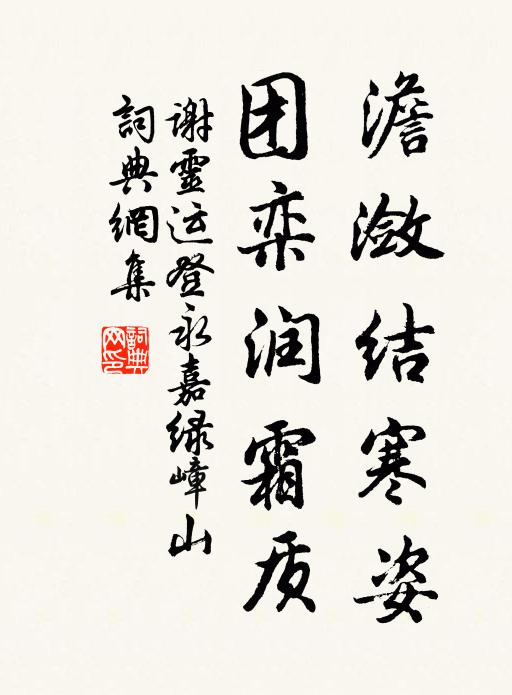 澹潋结寒姿
团栾润霜质
谢靈运登永嘉绿嶂山
詞典網集
詞典网印